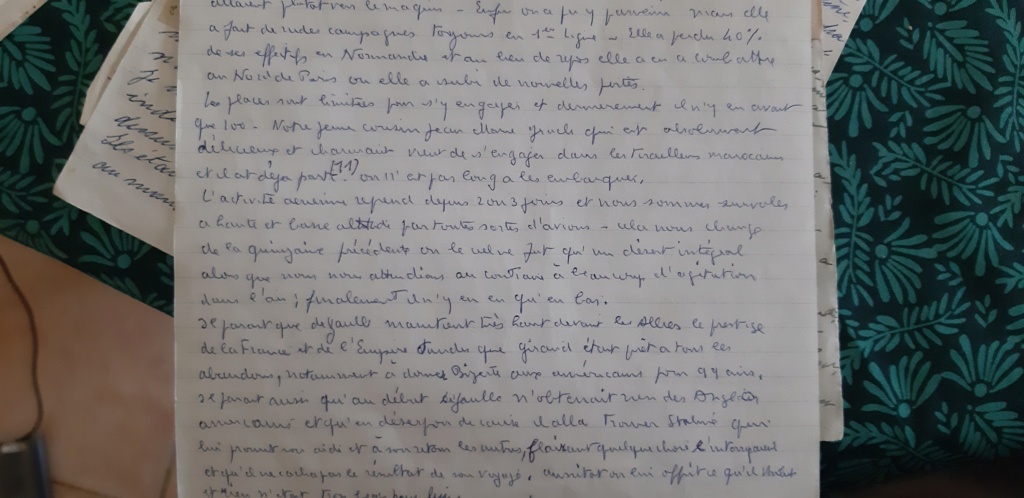 allaient plutôt vers le maquis - Enfin on a pu y parvenir mais elle
a fait de rudes campagnes toujours en 1ère ligne - Elle a perdu 40%
de ses effectifs en Normandie et au lieu de repos elle a eu à combattre
au Nord de Paris où elle a subi de nouvelles pertes.
Les places sont limitées pour s'y engager et dernièrement il n'y en avait
que 100 - Notre jeune cousin Jean Marie qui est absolument
délicieux et charmant vient de s'engager dans les tirailleurs marocains
et il est déjà parti (11) on n'est pas long à les embarquer.
L'activité aérienne reprend depuis 2 ou 3 jours et nous sommes survolés
à haute et basse altitude par toutes sortes d'avions - cela nous change
de la quinzaine précédente où le ciel ne fut qu'un désert intégral
alors que nous nous attendions au contraire à beaucoup d'agitation
dans l'air ; finalement il n'y en eu qu'en bas.
Il parait que de Gaulle maintient très haut devant les Alliés le prestige
de la France et de l'Empire tandis que Giraud était prêt à tous les
abandons, notamment à donner Bizerte aux américains pour 99 ans.
Il parait aussi qu'au début de Gaulle n'obtenait rien des Anglo
américains et qu'en désespoir de cause il alla trouver Staline qui
lui promit son aide et à son retour les autres, flairant quelque chose l'interrogèrent
et qu'il ne cacha pas le résultat de son voyage. aussitôt on lui offrit ce qu'il voulait
et rien n'était trop beau pour lui.